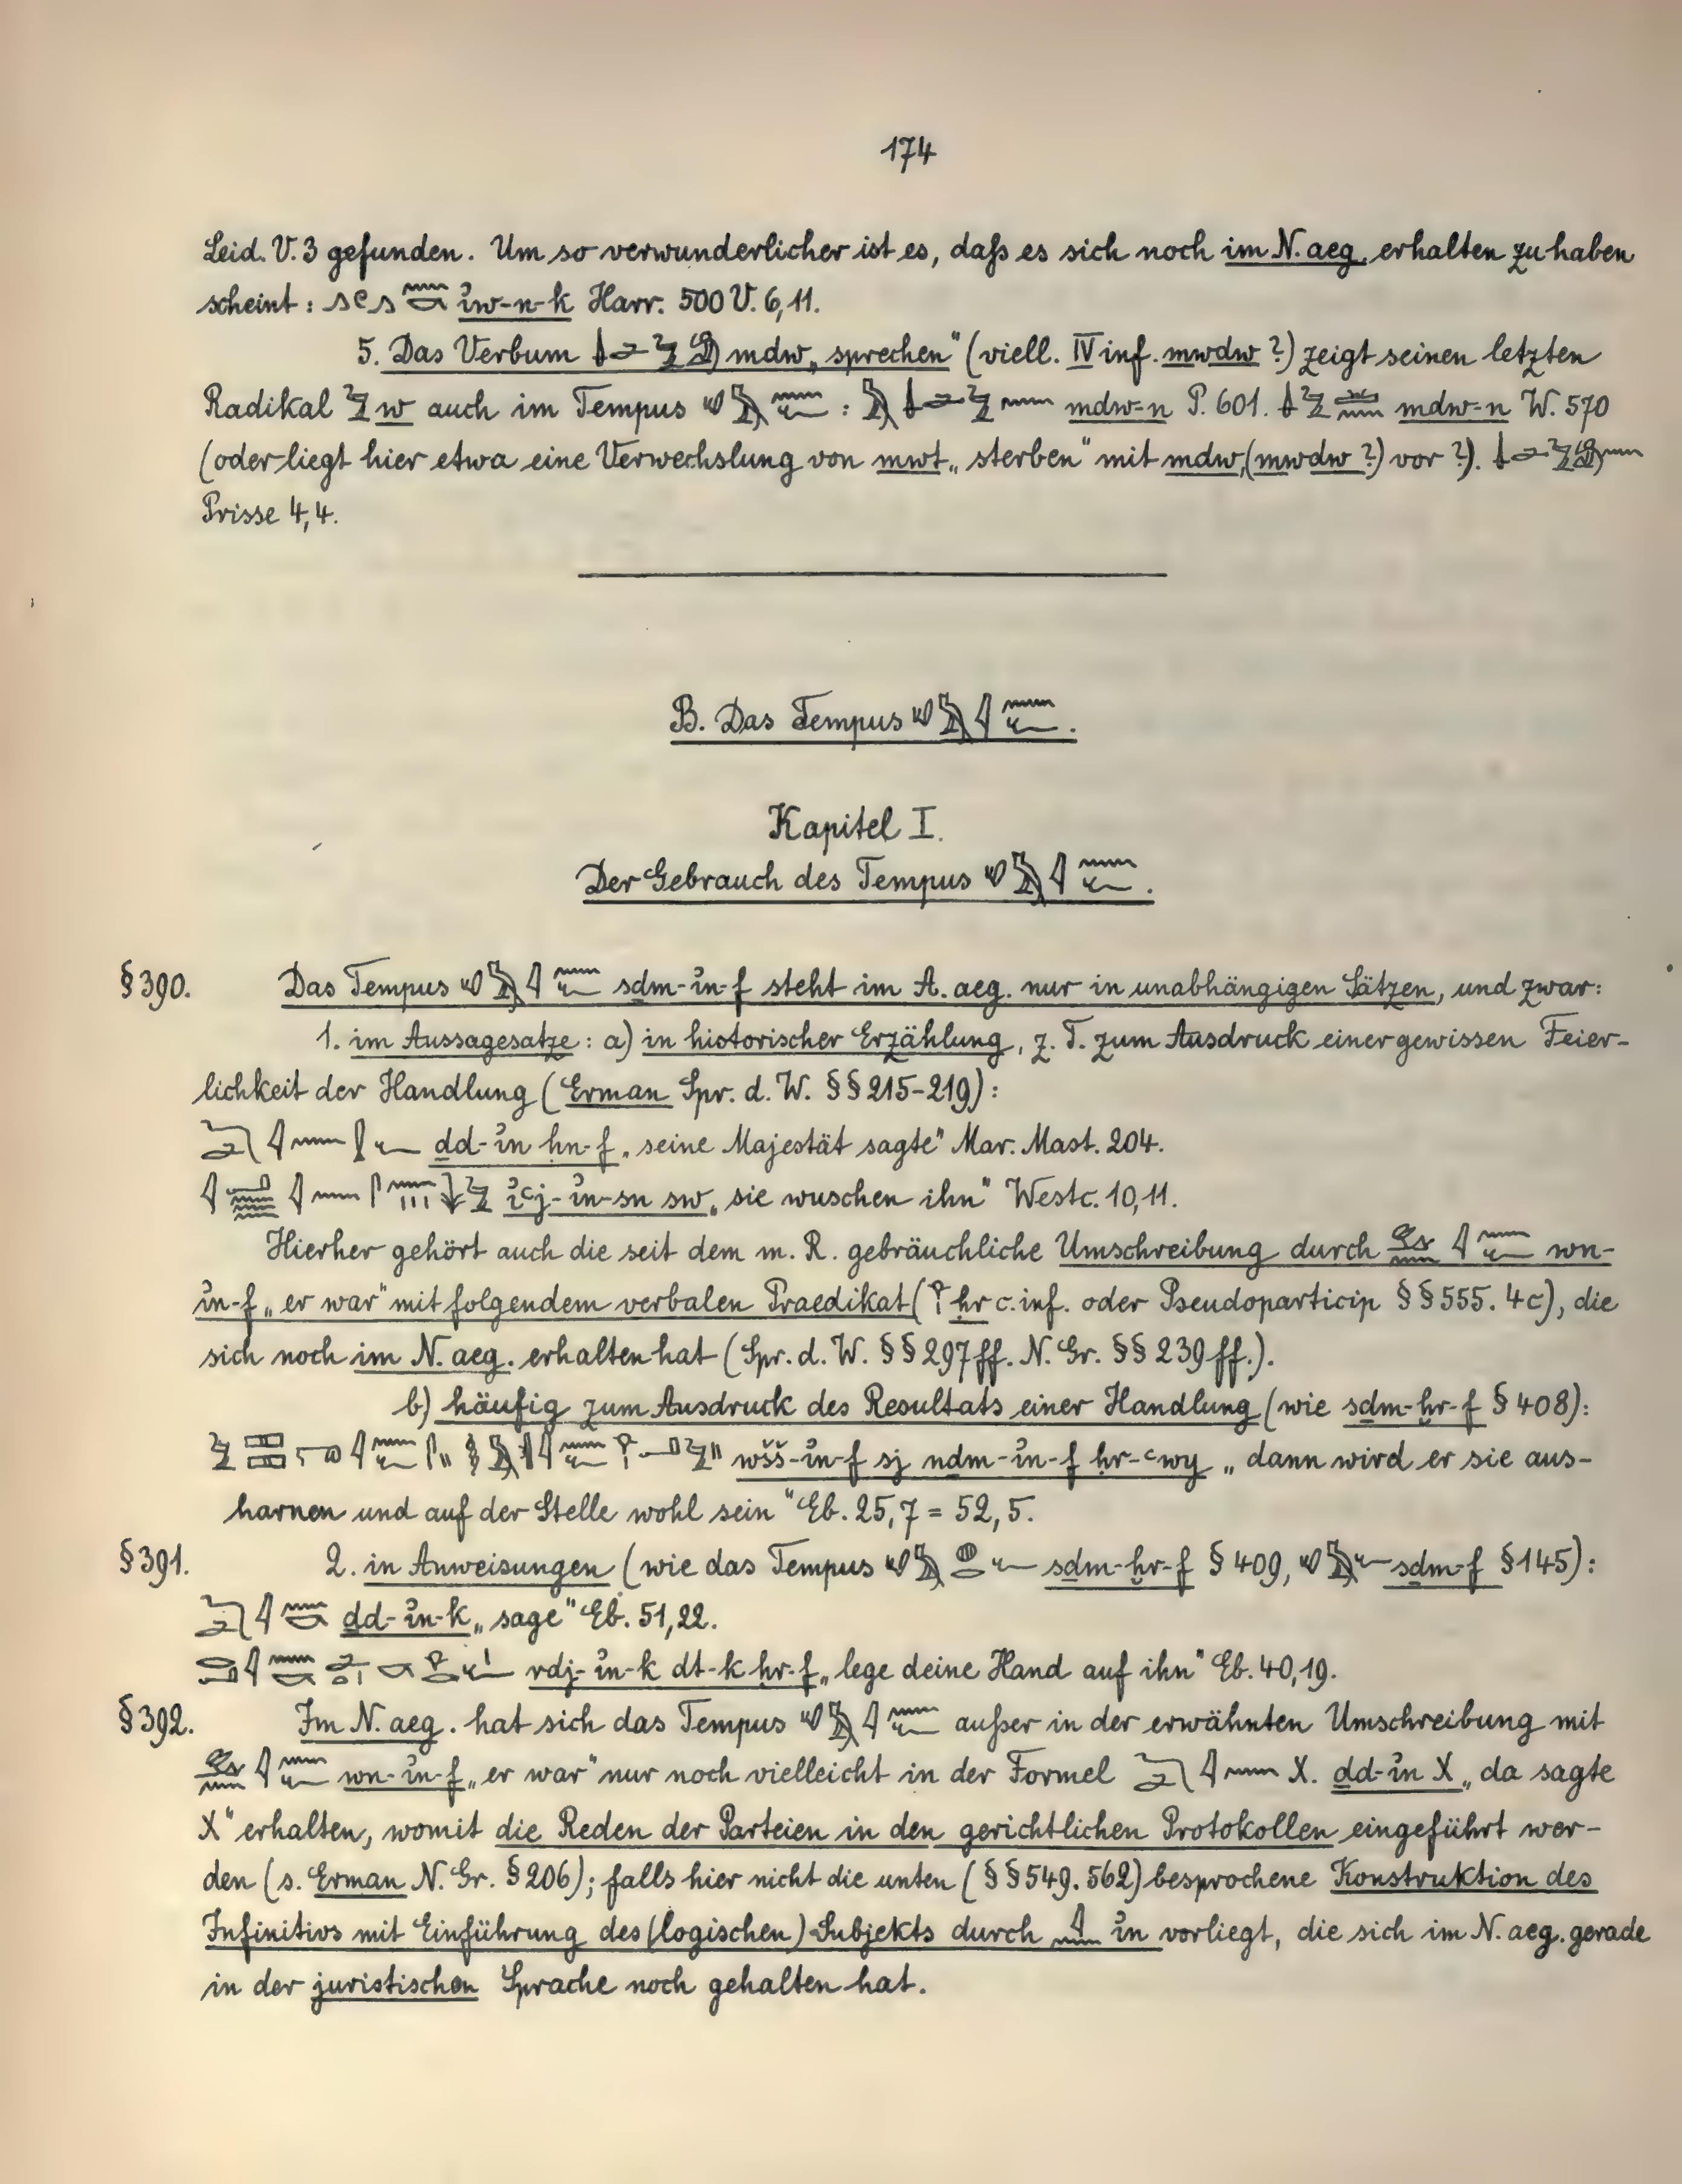 174
Leid. V. 3 gefunden. Um so verwunderlicher ist es, daß es sich noch im N. aeg. erhalten zu haben
scheint: ỉw-n-k Harr. 500 V. 6,11.
5. Das Verbum mdw „sprechen“ (viell. IV inf. mwdw ?) zeigt seinen letzten
Radikal w auch im Tempus : mdw-n P. 601. mdw-n W. 570
(oder liegt hier etwa eine Verwechslung von mwt „sterben“ mit mdw (mwdw ?) vor ?).
Prisse 4,4.
B. Das Tempus .
Kapitel I.
Der Gebrauch des Tempus .
§ 390. Das Tempus sḏm-ỉn-f steht im A. aeg. nur in unabhängigen Sätzen, und zwar:
1. im Aussagesatze: a) in historischer Erzählung, z. T. zum Ausdruck einer gewissen Feier-
lichkeit der Handlung (Erman Spr. d. W. §§ 215-219):
ḏd-ỉn ḥn-f „seine Majestät sagte“ Mar. Mast. 204.
ỉꜥj-ỉn-sn sw „sie wuschen ihn“ Westc. 10,11.
Hierher gehört auch die seit dem m. R. gebräuchliche Umschreibung durch wn-
ỉn-f „er war“ mit folgendem verbalen Praedikat (ḥr c. inf. oder Pseudoparticip §§ 555. 4c), die
sich noch im N. aeg. erhalten hat (Spr. d. W. §§ 297 ff. N. Gr. §§ 239 ff.).
b) häufig zum Ausdruck des Resultats einer Handlung (wie sḏm-ḫr-f § 408):
wšš-ỉn-f sj nḏm-ỉn-f ḥr-ꜥwy „dann wird er sie aus-
harnen und auf der Stelle wohl sein“ Eb. 25,7 = 52,5.
§ 391. 2. in Anweisungen (wie das Tempus sḏm-ḫr-f § 409, sḏm-f § 145):
ḏd-ỉn-k „sage“ Eb. 51,22.
rdj-ỉn-k dt-k ḥr-f „lege deine Hand auf ihn“ Eb. 40,19.
§ 392. Im N. aeg. hat sich das Tempus außer in der erwähnten Umschreibung mit
wn-ỉn-f „er war“ nur noch vielleicht in der Formel X. ḏd-ỉn X „da sagte
X“ erhalten, womit die Reden der Parteien in den gerichtlichen Protokollen eingeführt wer-
den (s. Erman N. Gr. § 206); falls hier nicht die unten (§§ 549. 562) besprochene Konstruktion des
Infinitivs mit Einführung des (logischen) Subjekts durch ỉn vorliegt, die sich im N. aeg. gerade
in der juristischen Sprache noch gehalten hat.